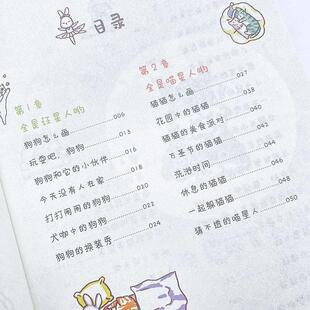 目录
第1章
全是汪星人哟
狗狗怎么画 006
玩耍吧，狗狗 013
狗狗和它的小伙伴 016
今天没有人在家 018
打打闹闹的狗狗 020
犬咖中的狗狗 022
狗狗的换装秀 024
第2章
全是喵星人哟
猫猫怎么画 037
花园中的猫猫 038
猫猫的美食派对 040
万圣节的猫猫 042
洗澡时间 044
休息的猫猫 046
一起躲猫猫 048
猜不透的喵星人 050